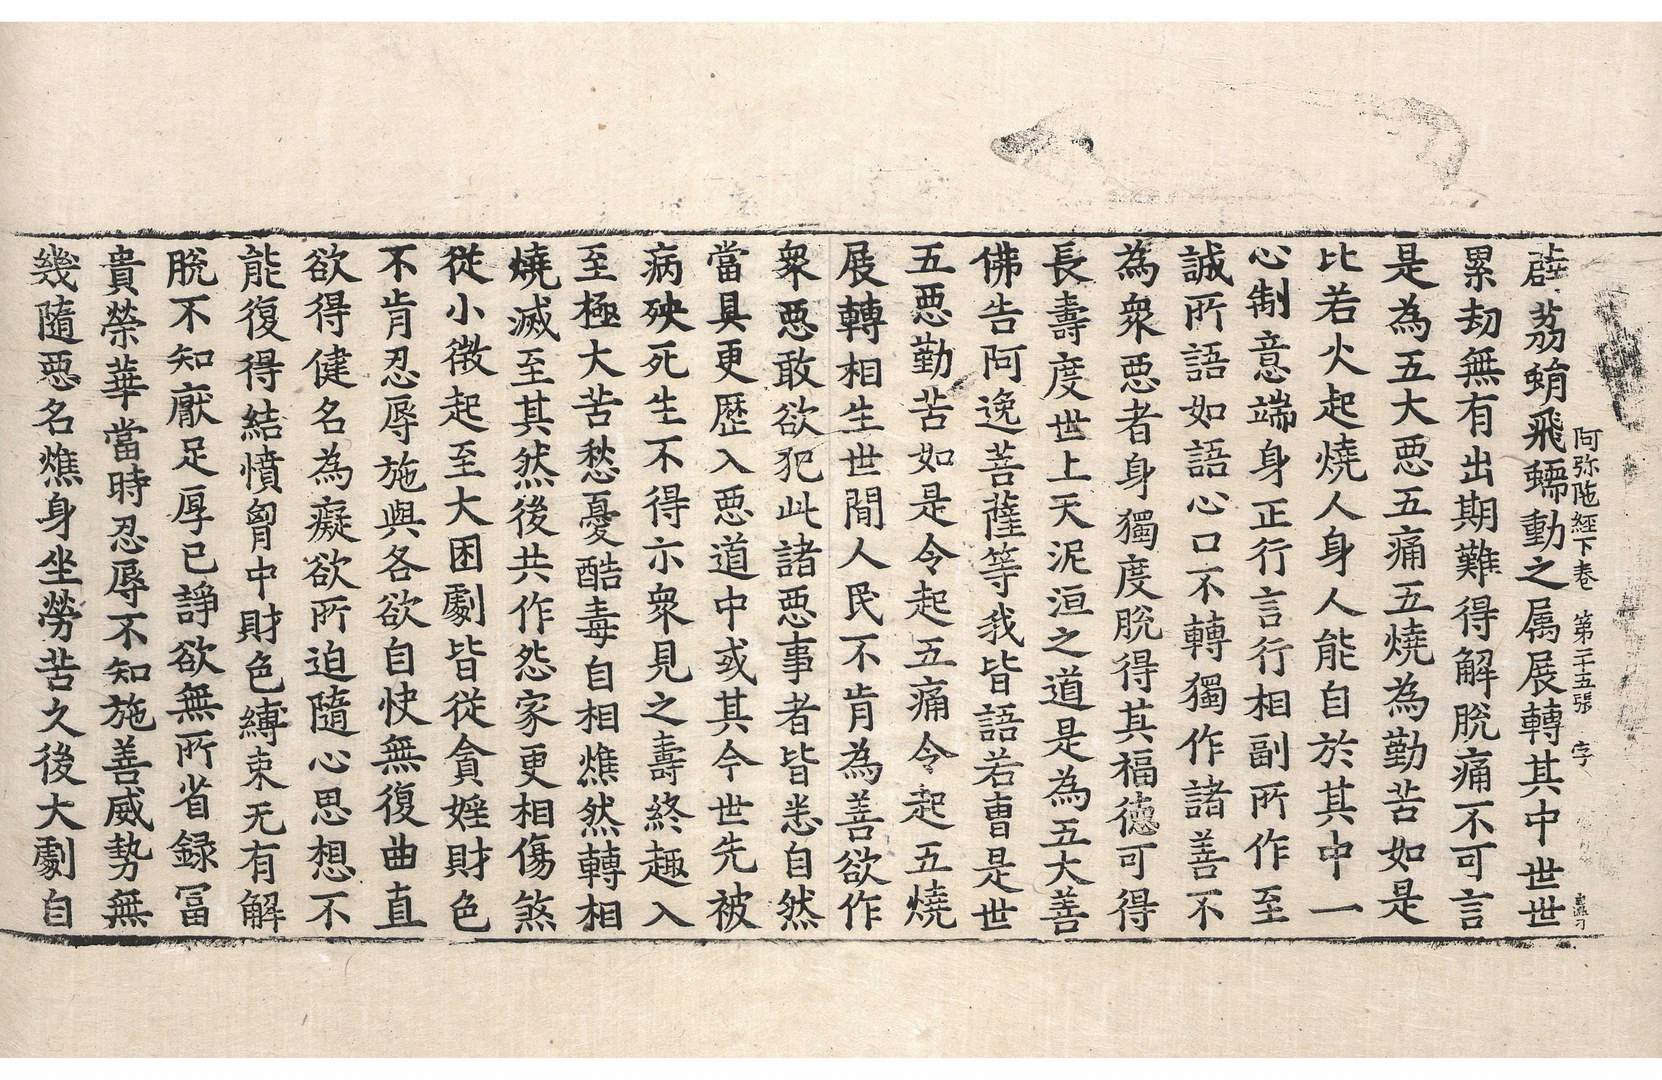 阿弥陁經下卷 第二十五張 字
薜荔蜎飛蠕動之属展轉其中世世
累劫無有出期難得解脫痛不可言
是為五大惡五痛五燒為勤苦如是
比若火起燒人身人能自於其中一
心制意端身正行言行相副所作至
誠所語如語心口不轉獨作諸善不
為衆惡者身獨度脫得其福德可得
長壽度世上天泥洹之道是為五大善
佛告阿逸菩薩等我皆語若曺是世
五惡勤苦如是令起五痛令起五燒
展轉相生世間人民不肯為善欲作
衆惡敢欲犯此諸惡事者皆悉自然
當具更歷入惡道中或其今世先被
病殃死生不得亦衆見之壽終趣入
至極大苦愁憂酷毒自相燋然轉相
燒滅至其然後共作怨家更相傷煞
從小微起至大困劇皆從貪婬財色
不肯忍辱施與各欲自快無復曲直
欲得健名為癡欲所迫隨心思想不
能復得結憤胷中財色縛束无有解
脫不知厭足厚已諍欲無所省録冨
貴榮華當時忍辱不知施善威勢無
幾隨惡名燋身坐勞苦久後大劇自